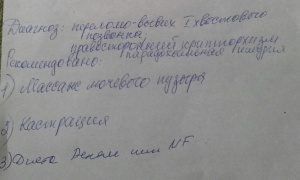 Диагноз: переломо-вывих I хвостового
позвонка,
правосторонний крипторхизм
парадоксальная ишурия
Рекомендовано:
1) Массаж мочевого пузыря
2) Кастрация
3) Диета Ренал или NF